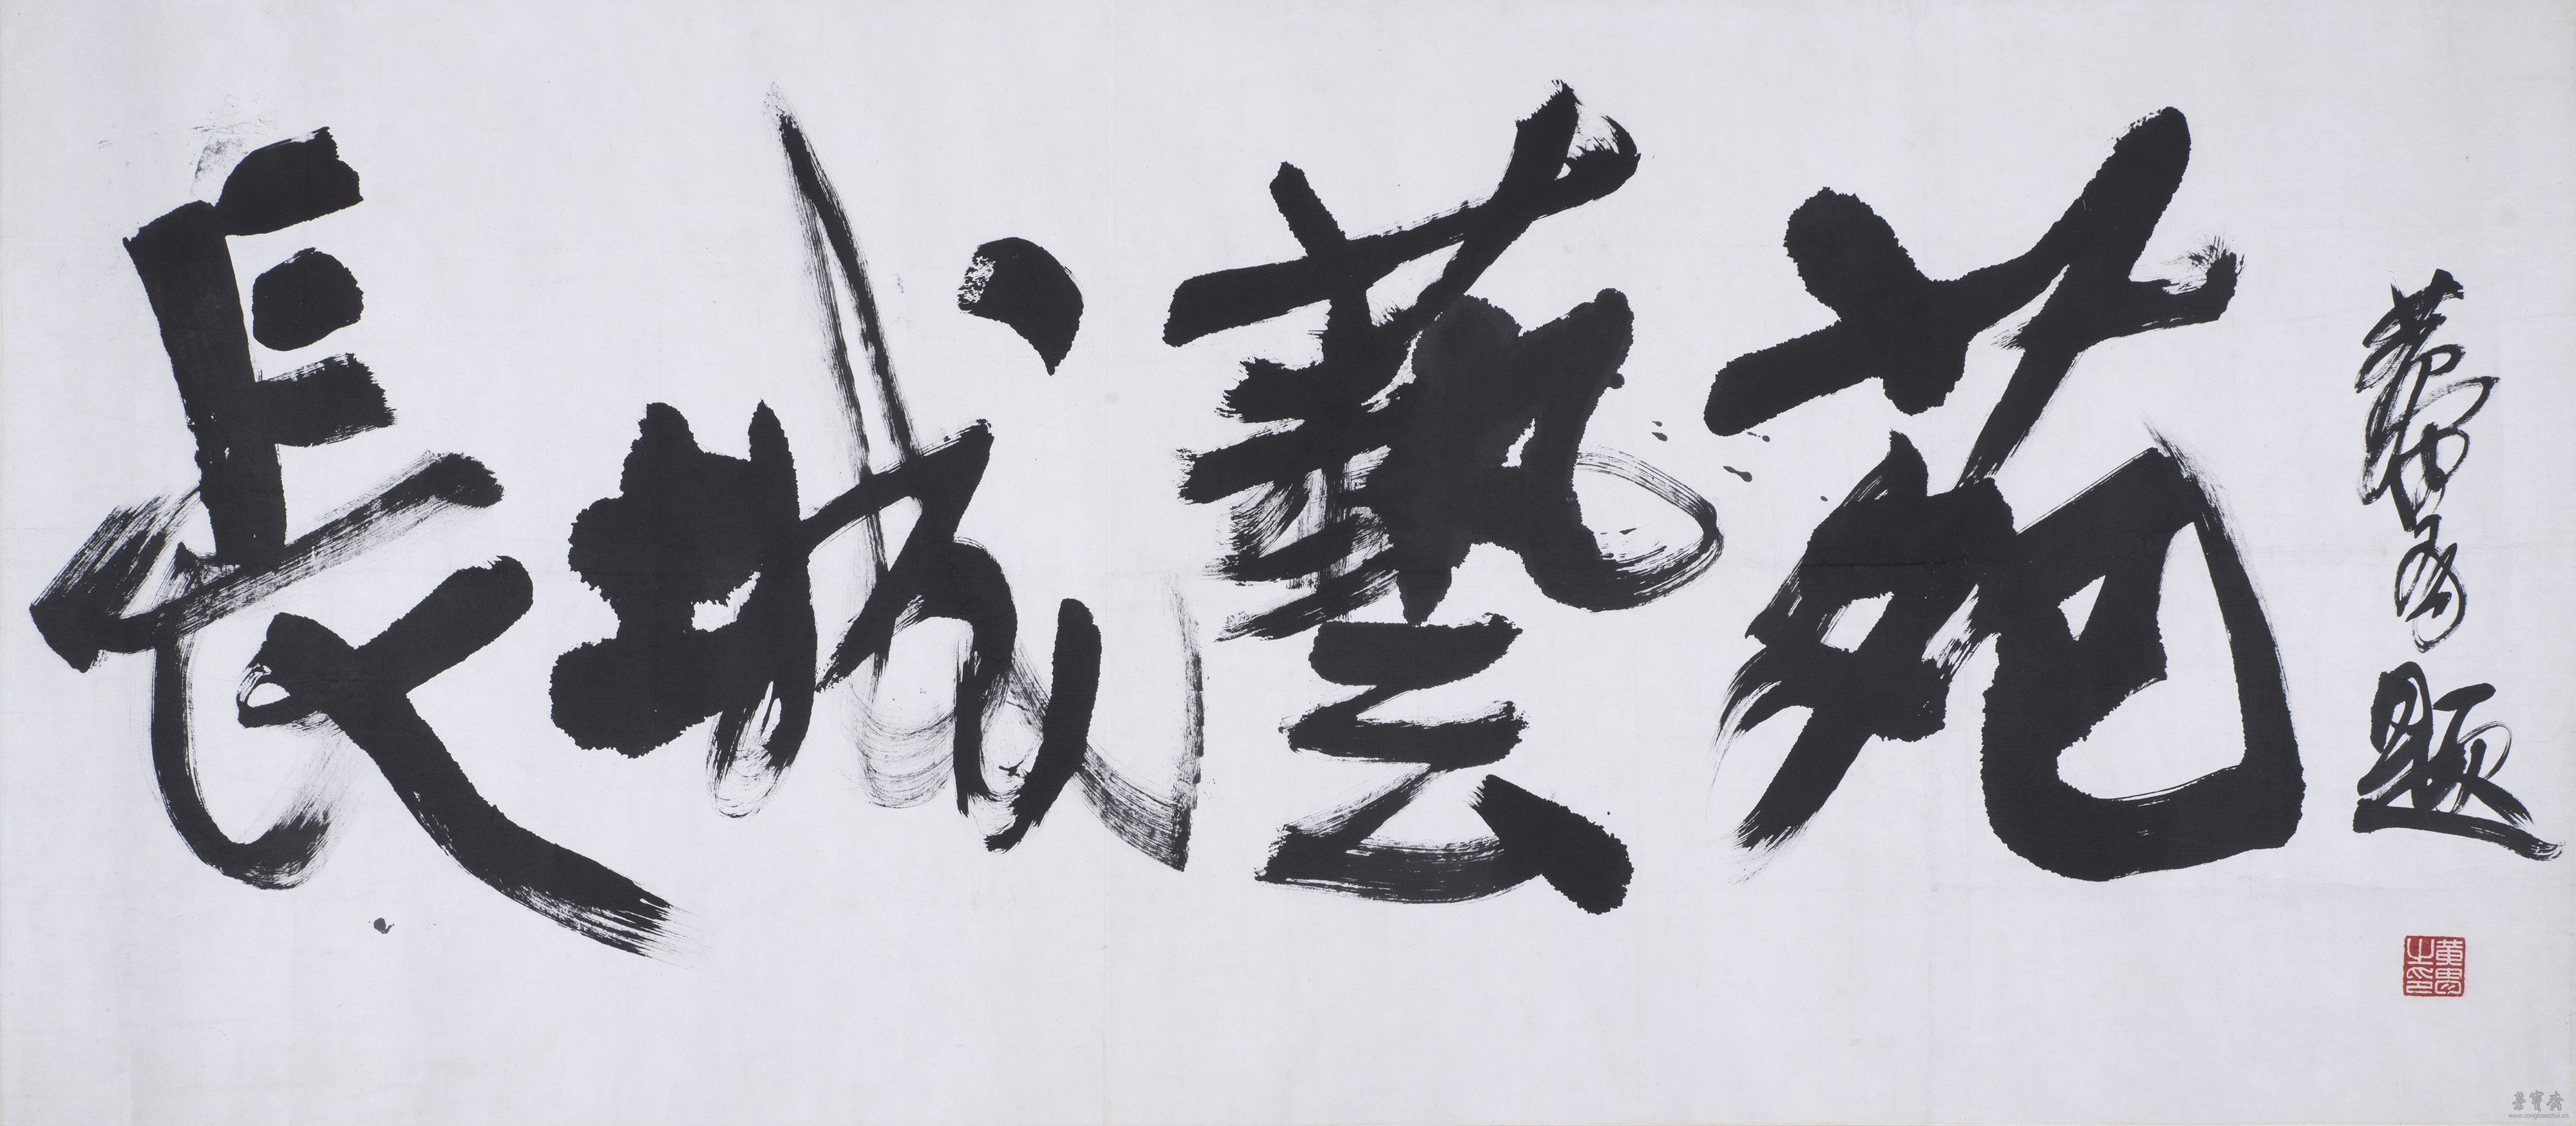 長城藝苑
黄胄題
黄胄之印
榮寶齋
www.rongbaozhai.cn